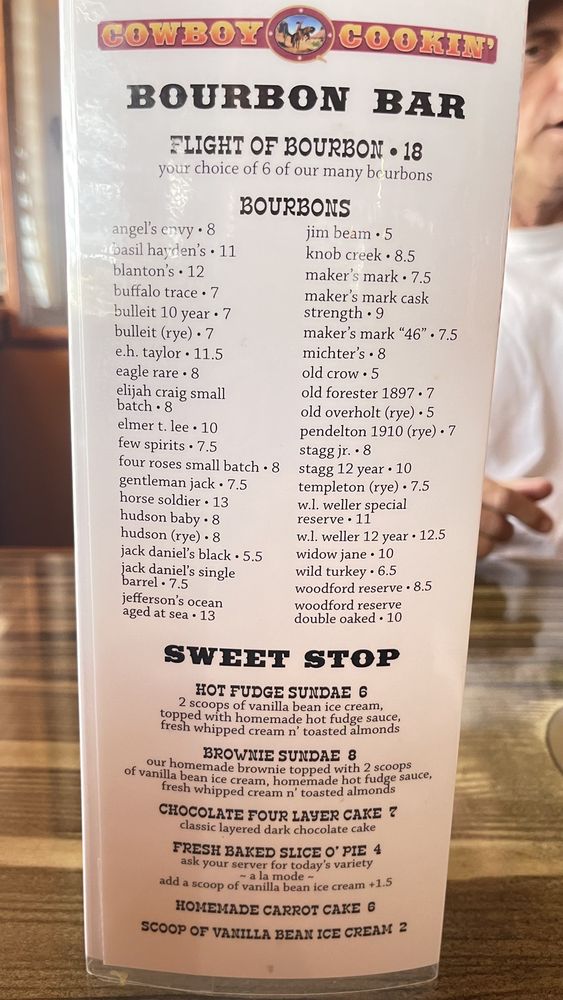 COWBOY COOKIN'
BOURBON BAR
FLIGHT OF BOURBON • 18
your choice of 6 of our many bourbons
BOURBONS
angel's envy • 8
basil hayden's • 11
blanton's • 12
buffalo trace • 7
bulleit 10 year • 7
bulleit (rye) • 7
e.h. taylor • 11.5
eagle rare • 8
elijah craig small
batch • 8
elmer t. lee • 10
few spirits • 7.5
four roses small batch • 8
gentleman jack • 7.5
horse soldier • 13
hudson baby • 8
hudson (rye) • 8
jack daniel's black • 5.5
jack daniel's single
barrel • 7.5
jefferson's ocean
aged at sea • 13
jim beam • 5
knob creek • 8.5
maker's mark • 7.5
maker's mark cask
strength • 9
maker's mark "46" • 7.5
michter's • 8
old crow • 5
old forester 1897 • 7
old overholt (rye) • 5
pendelton 1910 (rye) • 7
stagg jr. • 8
stagg 12 year • 10
templeton (rye) • 7.5
w.l. weller special
reserve • 11
w.l. weller 12 year • 12.5
widow jane • 10
wild turkey • 6.5
woodford reserve • 8.5
woodford reserve
double oaked • 10
SWEET STOP
HOT FUDGE SUNDAE 6
2 scoops of vanilla bean ice cream,
topped with homemade hot fudge sauce,
fresh whipped cream n' toasted almonds
BROWNIE SUNDAE 8
our homemade brownie topped with 2 scoops
of vanilla bean ice cream, homemade hot fudge sauce,
fresh whipped cream n' toasted almonds
CHOCOLATE FOUR LAYER CAKE 7
classic layered dark chocolate cake
FRESH BAKED SLICE O' PIE 4
ask your server for today's variety
~ a la mode ~
add a scoop of vanilla bean ice cream +1.5
HOMEMADE CARROT CAKE 6
SCOOP OF VANILLA BEAN ICE CREAM 2